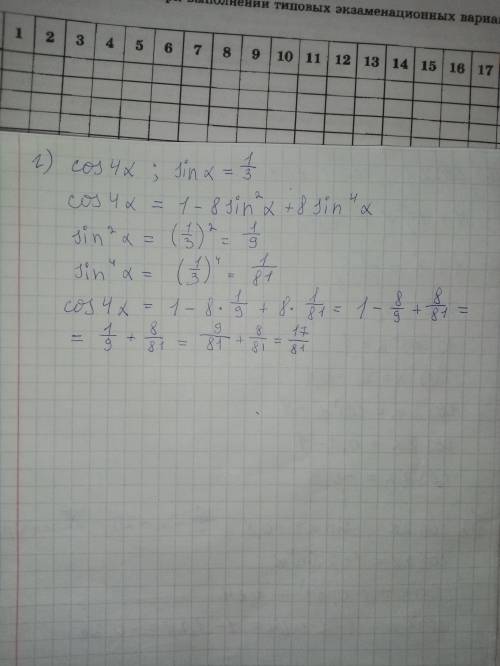 ри выполнении типовых экзаменационных вариан
1 2 3 4 5 6 7 8 9 10 11 12 13 14 15 16 17
г) cos 4α ; sin α = 1/3
cos 4α = 1 - 8 sin²α + 8 sin⁴α
sin²α = (1/3)² = 1/9
sin⁴α = (1/3)⁴ = 1/81
cos 4α = 1 - 8 · 1/9 + 8 · 1/81 = 1 - 8/9 + 8/81 =
= 1/9 + 8/81 = 9/81 + 8/81 = 17/81